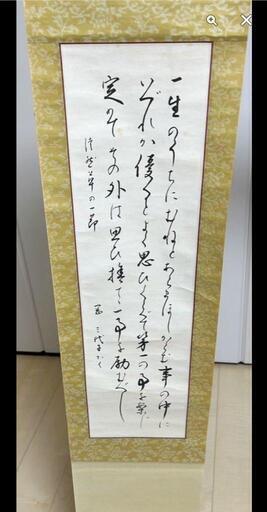 一生のうちにむねとあらまほしからむ事の中に
いづれか優るとよく思ひくらべて第一の事を案じ
定めてその外は思ひ捨てて一事を励むべし
徒然草の一節